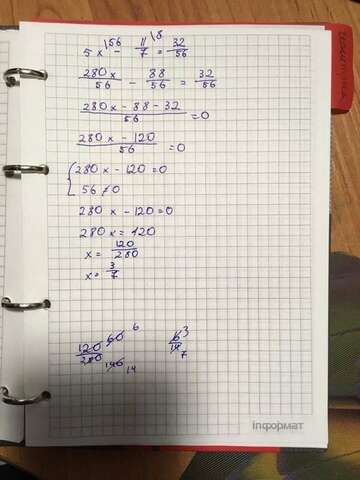 5x\56 - 11/7\8 = 32/56
280x/56 - 88/56 = 32/56
280x - 88 - 32/56 = 0
280x - 120/56 = 0
{280x - 120 = 0
56 ≠ 0
280x - 120 = 0
280x = 120
x = 120/280
x = 3/7
120/280 60/140 6/14
6/14 3/7
інформат